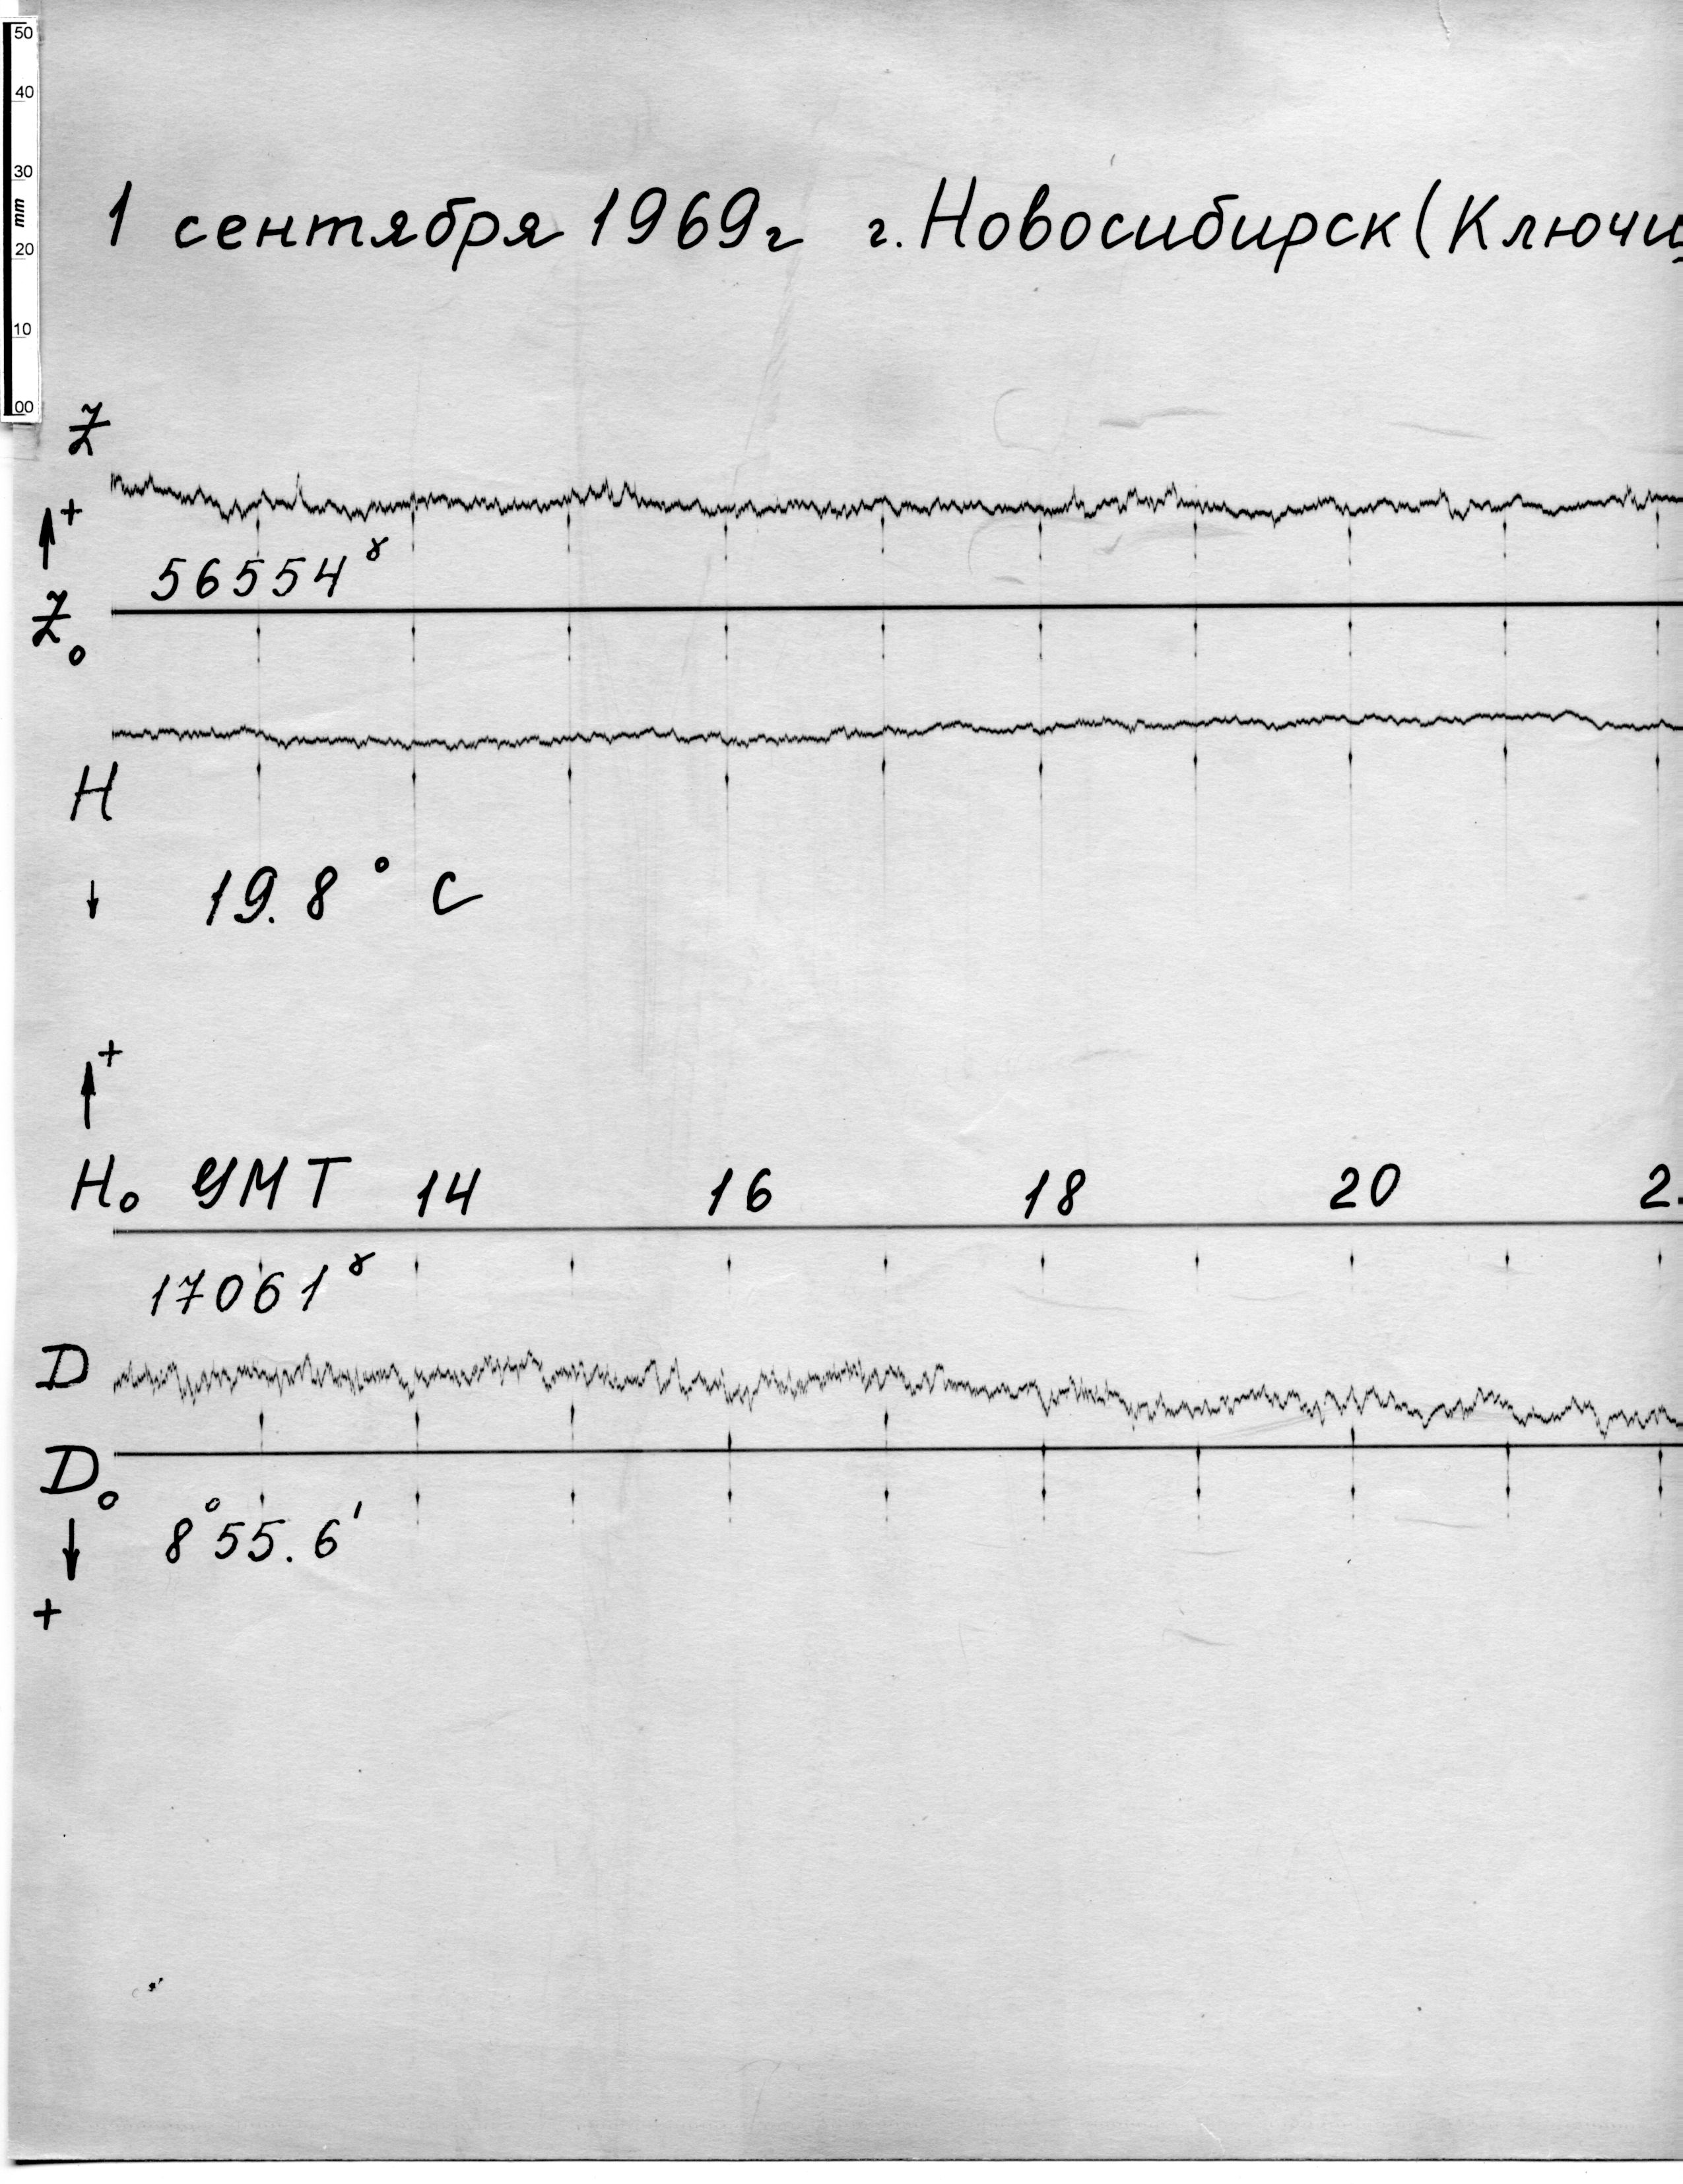 50
40
30
mm
20
10
00
1 сентября 1969г г. Новосибирск (Ключи
Z
+
56554 γ
Z₀
H
19.8° C
+
H₀ УМТ 14 16 18 20 2
17061 γ
D
D₀
8°55.6'
+